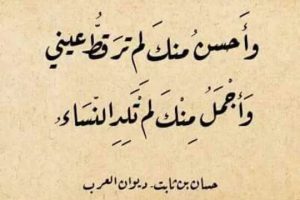 وَأَحسنُ منكَ لم ترَ قطُّ عيني
وَأَجْمَلُ مِنْكَ لَمْ تَلِدِ النّسَاءُ
حسان بن ثابت - ديوان العرب